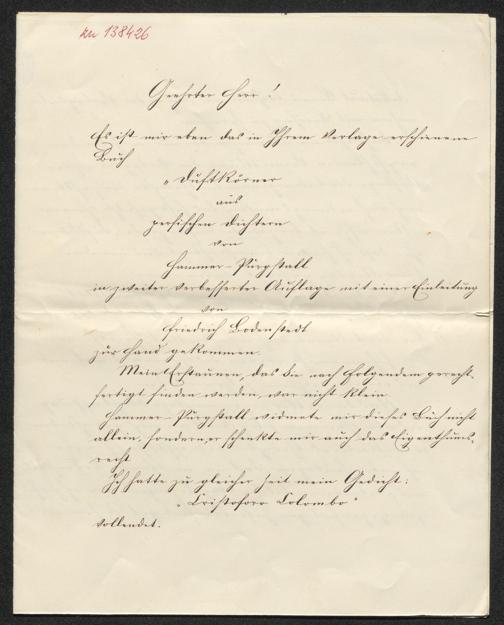 zu 138426
Geehrter Herr!
Es ist mir eben das in Ihrem Verlage erschienene
Buch
„Duftkörner
aus
persischen Dichtern
von
Hammer-Purgstall
in zweiter verbesserter Auflage mit einer Einleitung
von
Friedrich Bodenstedt
zur Hand gekommen.
Mein Erstaunen, das Sie nach Folgendem gerecht-
fertigt finden werden, war nicht klein.
Hammer-Purgstall widmete mir dieses Buch nicht
allein, sondern er schenkte mir auch das Eigenthums-
recht.
Ich hatte zu gleicher Zeit mein Gedicht:
„Cristoforo Colombo"
vollendet.